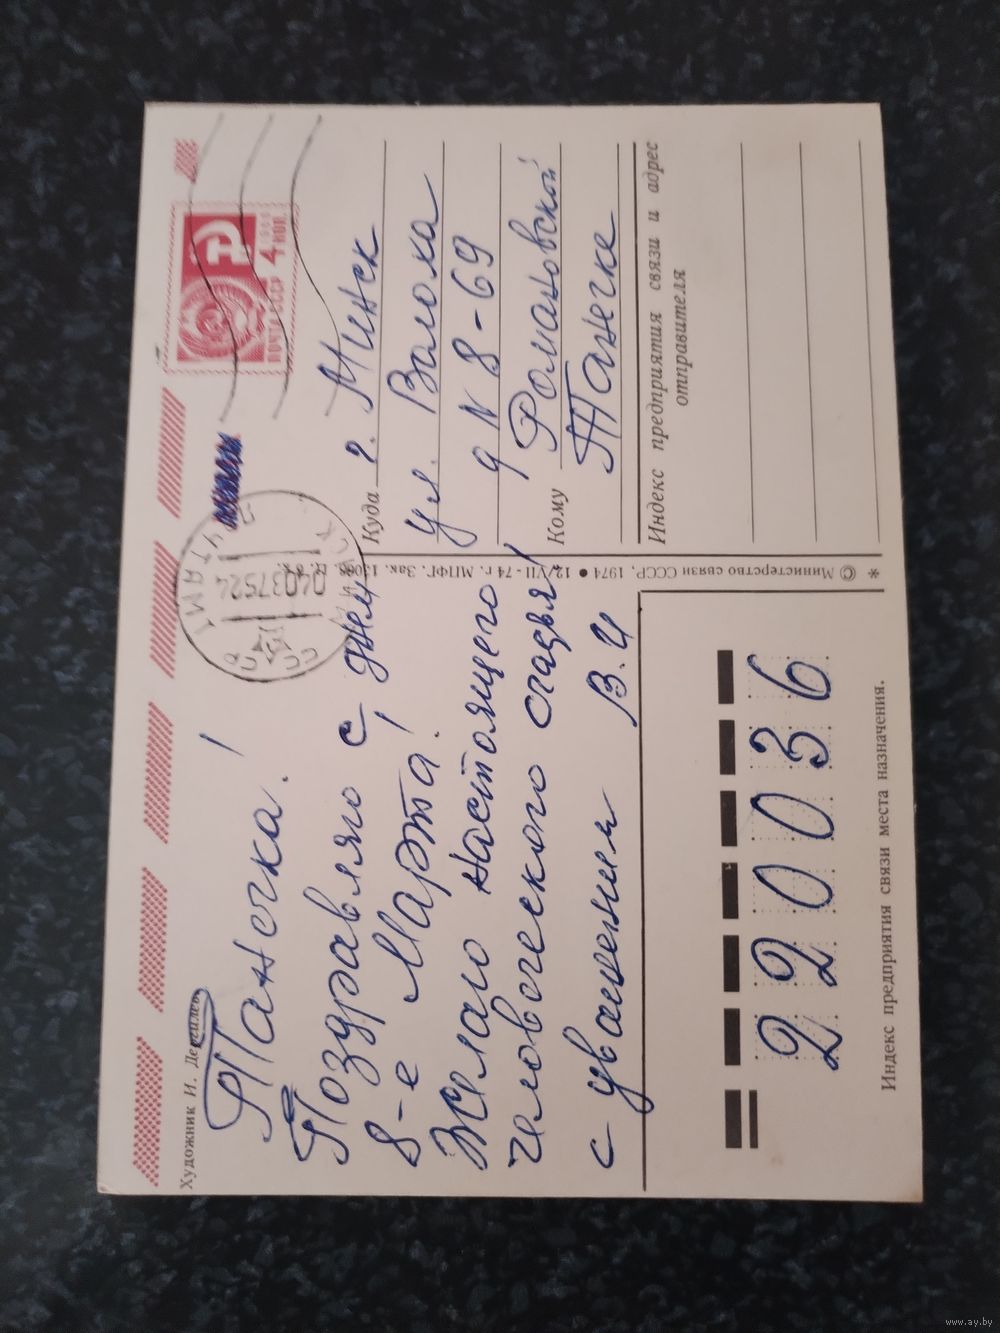 Художник И. Дергилев
Танечка!
Поздравляю с днем
8-е Марта!
Желаю настоящего
человеческого счастья!
с уважением В.И
220036
Индекс предприятия связи места назначения.
ПОЧТА СССР 4 КОП
СССР
ПОЧТАМТ
04037524
МИНСК
© Министерство связи СССР, 1974 • 12/VII-74 г. МПФГ. Зак.
Куда г. Минск
ул. Волоха
д N 8-69
Кому Романовской
Танечке
Индекс предприятия связи и адрес
отправителя
www.ay.by